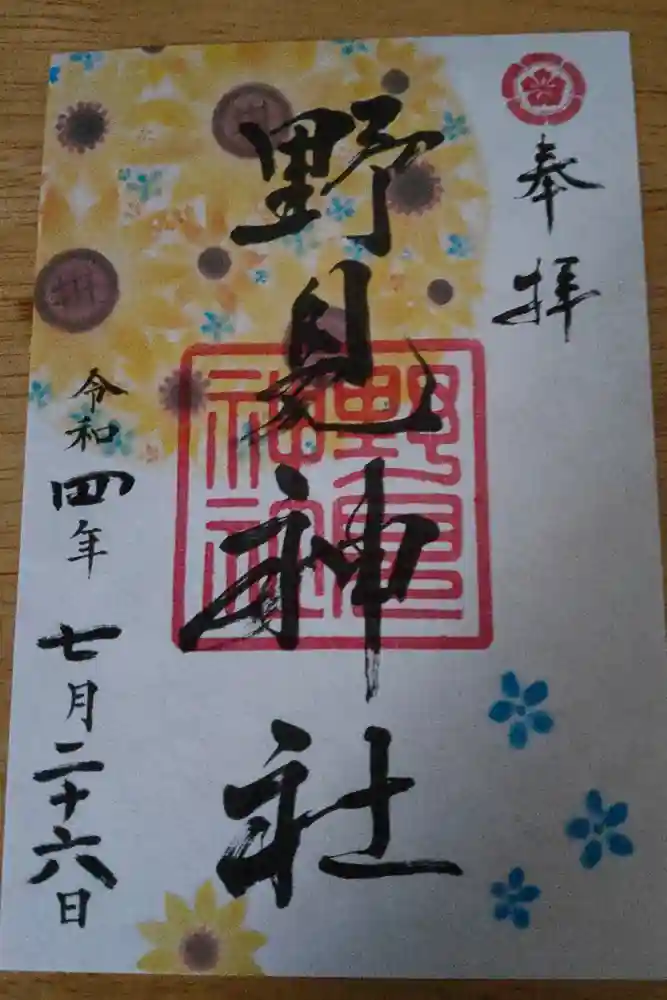 奉拝
野見神社
野見
神社
令和四年七月二十六日